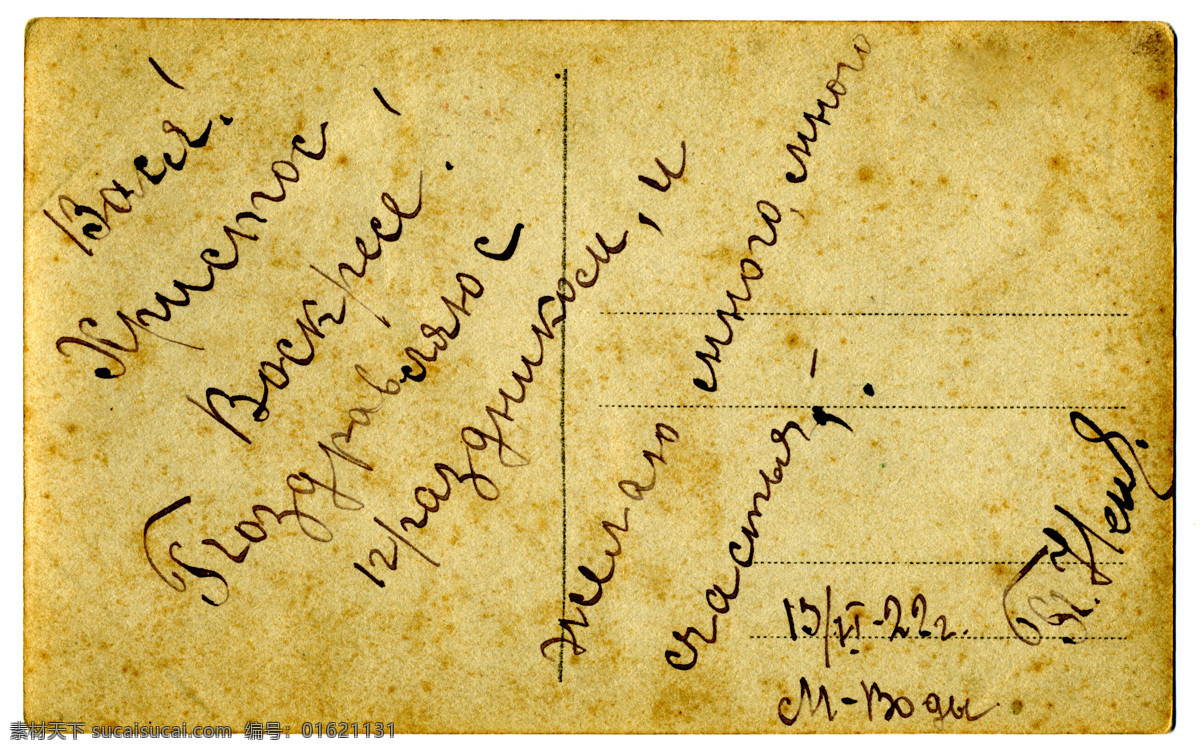 Вася!
Христос
Воскресе!
Поздравляю с
праздником, и
желаю много, много
счастья,-.
13/VI-22г.
М-Воды
素材天下 sucaisucai.com 编号: 01621131